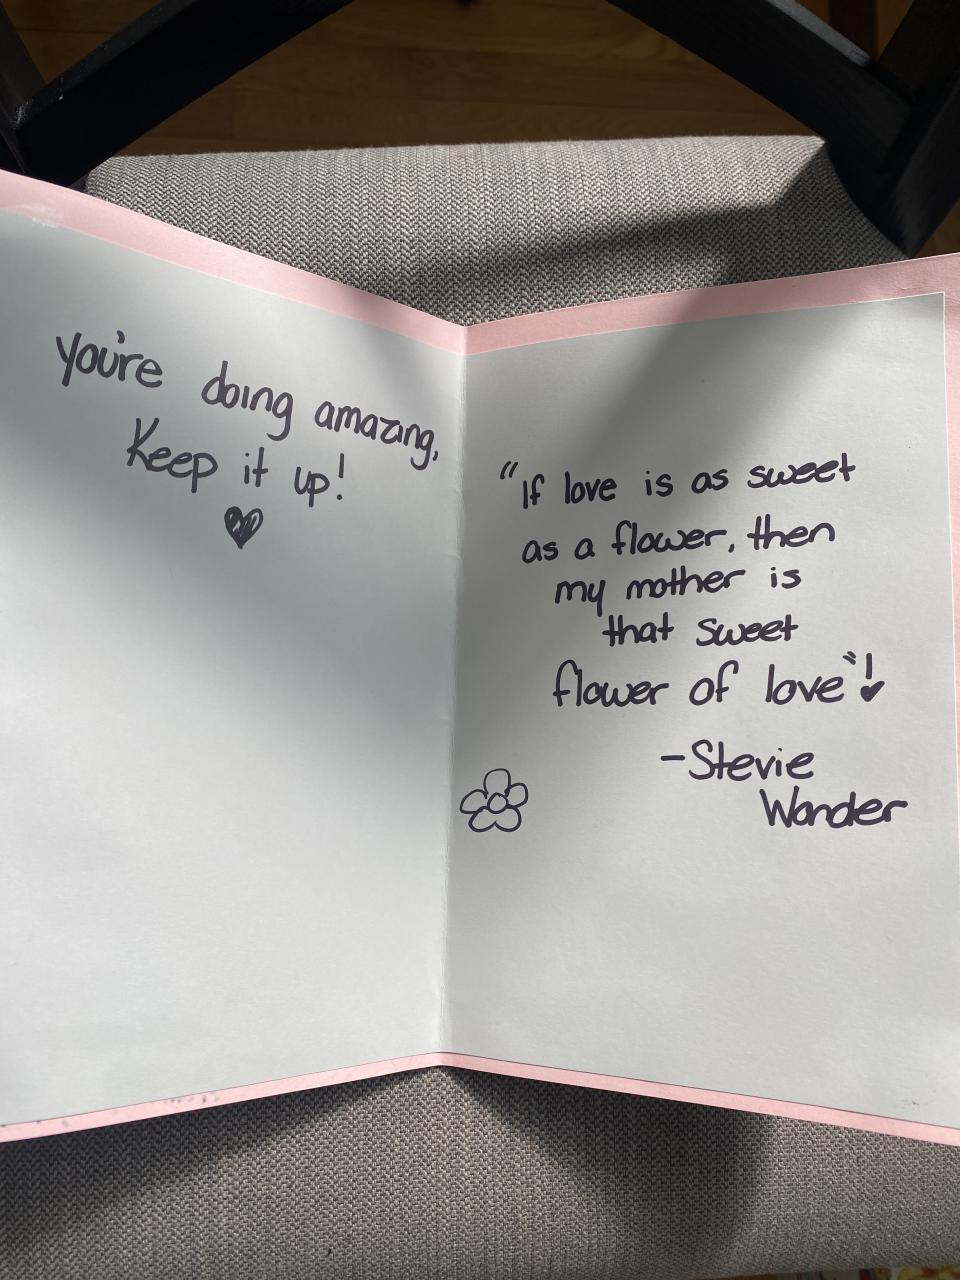 You're doing amazing,
Keep it up!
"If love is as sweet
as a flower, then
my mother is
that sweet
flower of love"!
-Stevie
Wonder